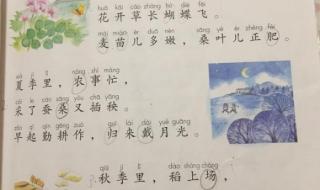 huā kāi cǎo zhǎng hú dié fēi
花开草长蝴蝶飞。
mài miáo ér duō nèn sāng yè ér zhèng féi
麦苗儿多嫩，桑叶儿正肥。
xià jì lǐ nóng shì máng
夏季里，农事忙，
cǎi le cán sāng yòu chā yāng
采了蚕桑又插秧。
zǎo qǐ qín gēng zuò guī lái dài yuè guāng
早起勤耕作，归来戴月光。
qiū jì lǐ dào shàng chǎng
秋季里，稻上场，